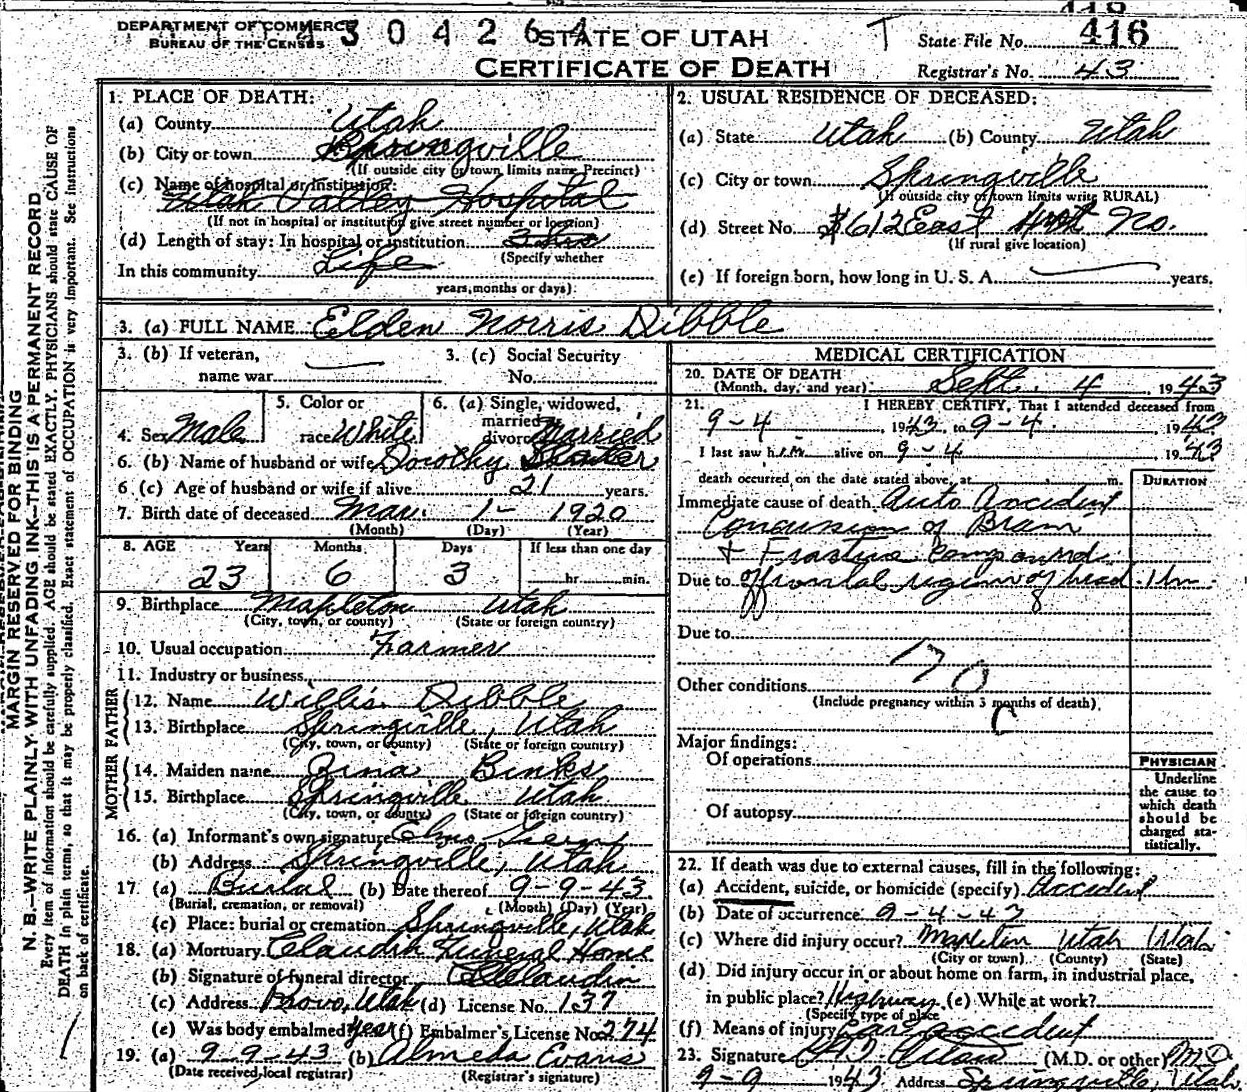 DEPARTMENT OF COMMERCE
BUREAU OF THE CENSUS
4 3 0 4 2 6 4
STATE OF UTAH
CERTIFICATE OF DEATH
T
State File No. 416
Registrar's No. 43
MARGIN RESERVED FOR BINDING
N. B.—WRITE PLAINLY, WITH UNFADING INK—THIS IS A PERMANENT RECORD
Every item of information should be carefully supplied. AGE should be stated EXACTLY. PHYSICIANS should state CAUSE OF
DEATH in plain terms, so that it may be properly classified. Exact statement of OCCUPATION is very important. See Instructions
on back of certificate.
1. PLACE OF DEATH:
(a) County Utah
(b) City or town Springville
(If outside city or town limits name Precinct)
(c) Name of hospital or institution:
Utah Valley Hospital
(If not in hospital or institution give street number or location)
(d) Length of stay: In hospital or institution 3 hrs
(Specify whether
In this community Life
years, months or days)
2. USUAL RESIDENCE OF DECEASED:
(a) State Utah (b) County Utah
(c) City or town Springville
(If outside city or town limits write RURAL)
(d) Street No. 612 East No.
(If rural give location)
(e) If foreign born, how long in U. S. A. years.
3. (a) FULL NAME Elden Norris Dibble
3. (b) If veteran,
name war
3. (c) Social Security
No.
4. Sex Male
5. Color or
race White
6. (a) Single, widowed,
married
divorced Married
6. (b) Name of husband or wife Dorothy
6 (c) Age of husband or wife if alive 21 years.
7. Birth date of deceased Mar. 1- 1920
(Month) (Day) (Year)
8. AGE Years Months Days If less than one day
23 6 3 hr. min.
9. Birthplace Mapleton Utah
(City, town, or county) (State or foreign country)
10. Usual occupation Farmer
11. Industry or business
FATHER
12. Name Willis Dibble
13. Birthplace Springville, Utah
(City, town, or county) (State or foreign country)
MOTHER
14. Maiden name Zina Binks
15. Birthplace Springville Utah
(City, town, or county) (State or foreign country)
16. (a) Informant's own signature
(b) Address Springville, Utah
17. (a) Burial (b) Date thereof 9-9-43
(Burial, cremation, or removal) (Month) (Day) (Year)
(c) Place: burial or cremation Springville, Utah
18. (a) Mortuary Claudin Funeral Home
(b) Signature of funeral director Claudin
(c) Address Provo, Utah (d) License No. 137
(e) Was body embalmed? Yes (f) Embalmer's License No. 274
19. (a) 9-9-43 (b) Almeda Evans
(Date received local registrar) (Registrar's signature)
MEDICAL CERTIFICATION
20. DATE OF DEATH
(Month, day, and year) Sept. 4 1943
21. I HEREBY CERTIFY, That I attended deceased from
9-4 1943, to 9-4 1943
I last saw him alive on 9-4 1943
death occurred, on the date stated above, at m.
DURATION
Immediate cause of death Auto Accident
Concussion of Brain
+ Fracture Compound
Due to of frontal region of head 1 hr
Due to
170
Other conditions
(Include pregnancy within 3 months of death)
C
Major findings:
Of operations
Of autopsy
PHYSICIAN
Underline
the cause to
which death
should be
charged sta-
tistically.
22. If death was due to external causes, fill in the following:
(a) Accident, suicide, or homicide (specify) Accident
(b) Date of occurrence 9-4-43
(c) Where did injury occur? Mapleton Utah Utah
(City or town) (County) (State)
(d) Did injury occur in or about home on farm, in industrial place,
in public place? Highway (e) While at work?
(Specify type of place
(f) Means of injury Car accident
23. Signature (M.D. or other) M.D.
9-9 1943 Address Springville Utah